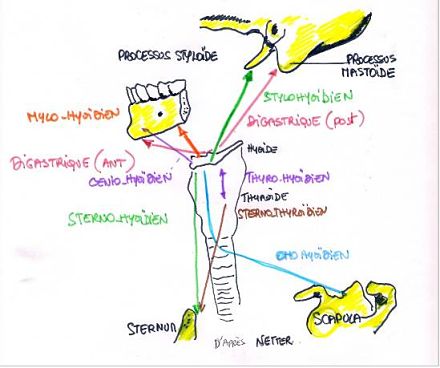 PROCESSUS STYLOÏDE
PROCESSUS
MASTOÏDE
STYLOHYOÏDIEN
MYLO-HYOÏDIEN
DIGASTRIQUE (POST)
HYOÏDE
DIGASTRIQUE (ANT)
GENIO-HYOÏDIEN
THYRO-HYOÏDIEN
THYROÏDE
STERNO-HYOÏDIEN
STERNO-THYROÏDIEN
OMO HYOÏDIEN
SCAPULA
STERNUM
D'APRÈS NETTER